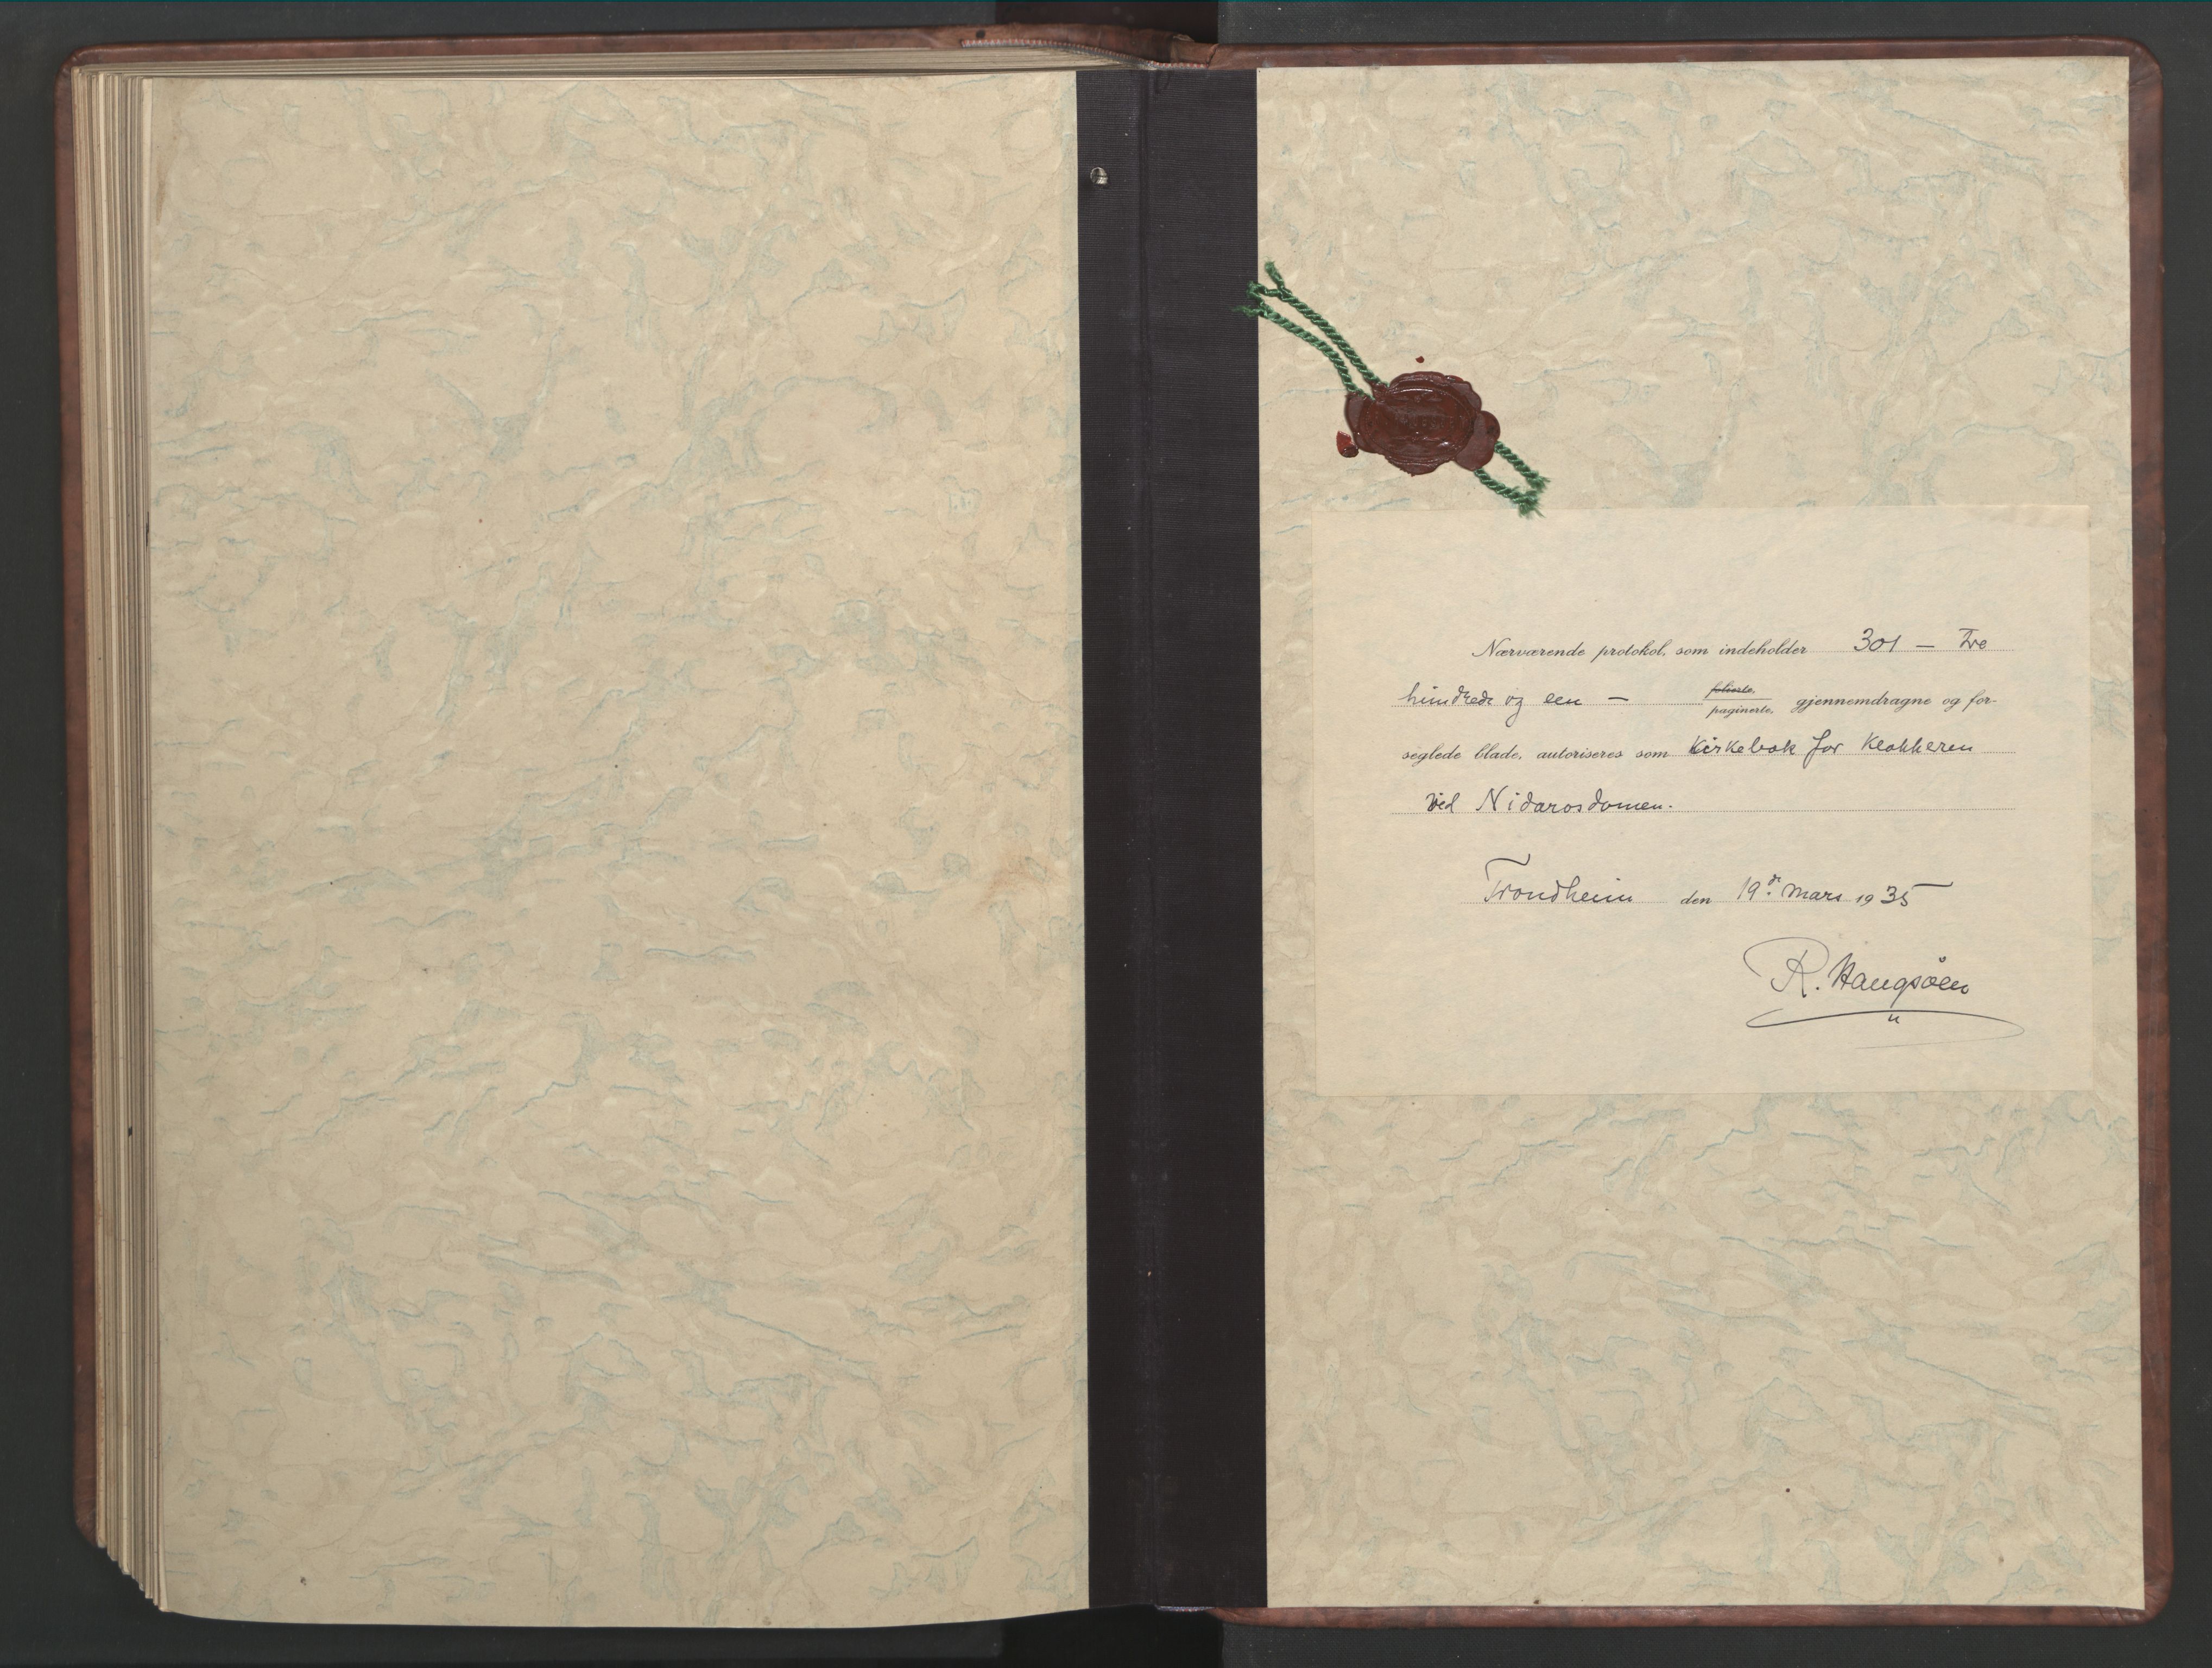 Nærværende protokol, som indeholder 301 — Tre
hundrede og een — folierte, paginerte, gjennemdragne og for-
seglede blade, autoriseres som Kirkebok for Klokkeren
ved Nidarosdomen.
Trondheim den 19de mars 1935
R. Haugsöen